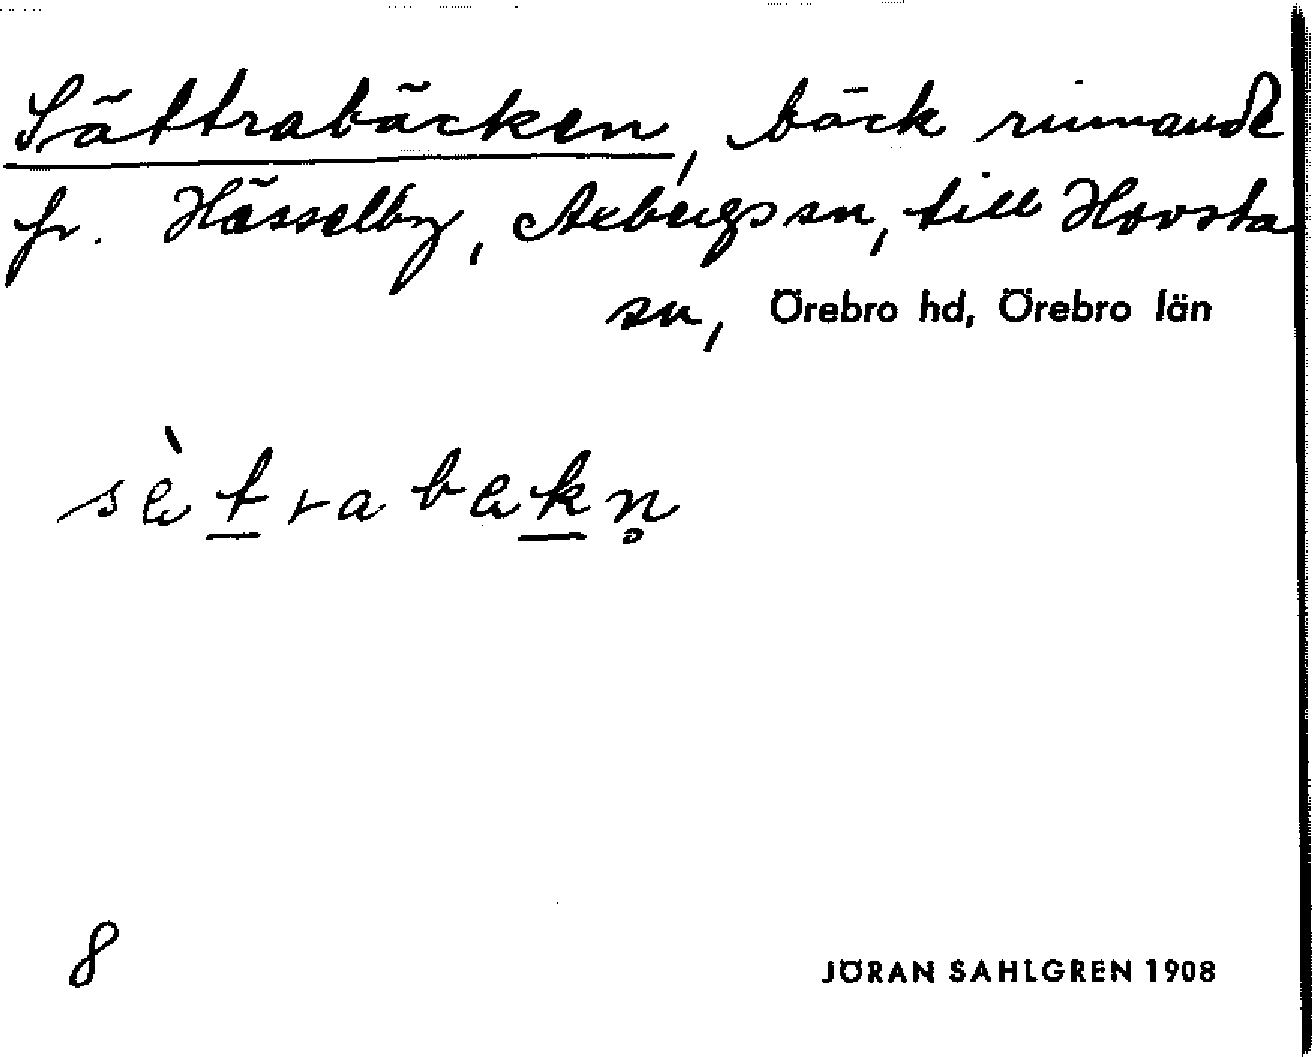 Sättrabäcken, bäck rinnande
fr. Hässelby, Axbergs sn, till Hovsta
sn, Örebro hd, Örebro län
sὲt̲rabɛk̲n̥
8
JÖRAN SAHLGREN 1908